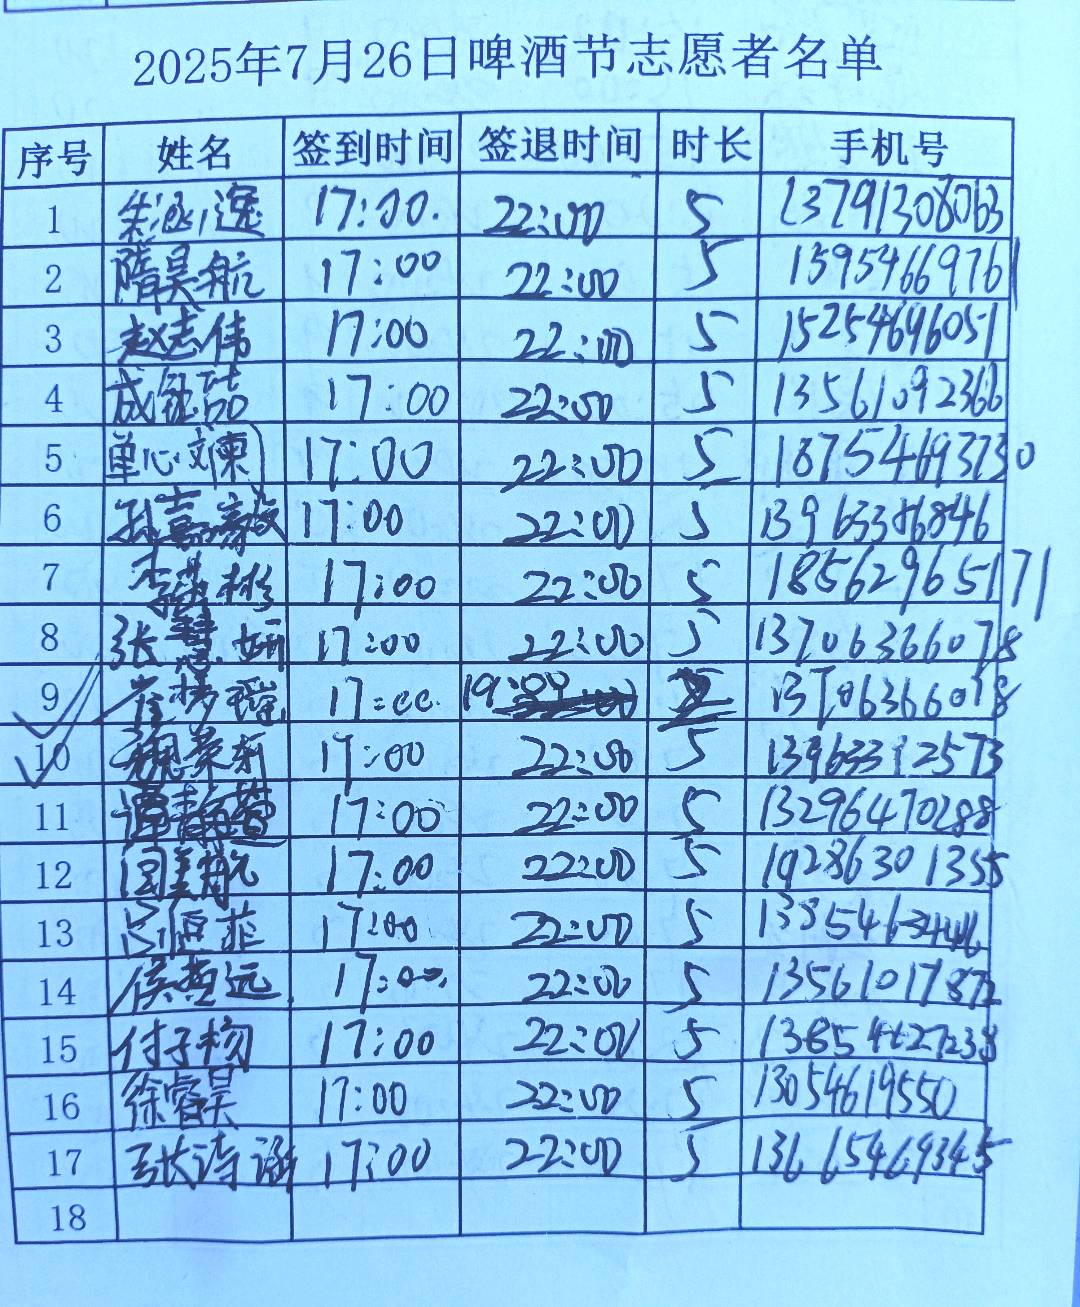 2025年7月26日啤酒节志愿者名单
序号 姓名 签到时间 签退时间 时长 手机号
1 朱涵逸 17:00. 22:00 5 13791308063
2 隋昊航 17:00 22:00 5 15954669761
3 赵志伟 17:00 22:00 5 15254696051
4 成钰喆 17:00 22:00 5 13561092366
5 单心文慷 17:00 22:00 5 18754693730
6 孙嘉 17:00 22:00 5 13963386846
7 17:00 22:00 5 18562965171
8 张慧妍 17:00 22:00 5 13706366078
9 崔梦瑶 17:00 19:00 13706366078
10 魏荣东 17:00 22:00 5 13963392573
11 谭静萱 17:00 22:00 5 13296470288
12 国美航 17:00 22:00 5 19286301355
13 17:00 22:00 5
14 侯楚远 17:00 22:00 5 13561017872
15 付子杨 17:00 22:00 5 13854627238
16 徐睿昊 17:00 22:00 5 13054619550
17 张诗涵 17:00 22:00 5 13665469345
18